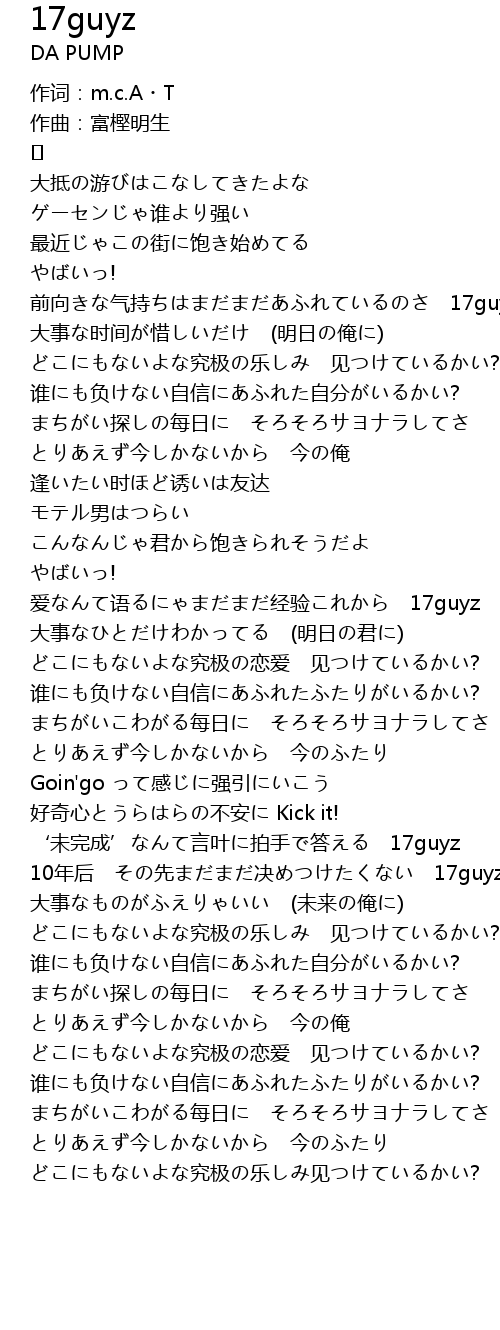 17guyz
DA PUMP
作词：m.c.A・T
作曲：富樫明生
[]
大抵の游びはこなしてきたよな
ゲーセンじゃ谁より强い
最近じゃこの街に饱き始めてる
やばいっ!
前向きな气持ちはまだまだあふれているのさ　17guy
大事な时间が惜しいだけ　(明日の俺に)
どこにもないよな究极の乐しみ　见つけているかい?
谁にも负けない自信にあふれた自分がいるかい?
まちがい探しの每日に　そろそろサヨナラしてさ
とりあえず今しかないから　今の俺
逢いたい时ほど诱いは友达
モテル男はつらい
こんなんじゃ君から饱きられそうだよ
やばいっ!
爱なんて语るにゃまだまだ经验これから　17guyz
大事なひとだけわかってる　(明日の君に)
どこにもないよな究极の恋爱　见つけているかい?
谁にも负けない自信にあふれたふたりがいるかい?
まちがいこわがる每日に　そろそろサヨナラしてさ
とりあえず今しかないから　今のふたり
Goin'go って感じに强引にいこう
好奇心とうらはらの不安に Kick it!
‘未完成’なんて言叶に拍手で答える　17guyz
10年后　その先まだまだ决めつけたくない　17guyz
大事なものがふえりゃいい　(未来の俺に)
どこにもないよな究极の乐しみ　见つけているかい?
谁にも负けない自信にあふれた自分がいるかい?
まちがい探しの每日に　そろそろサヨナラしてさ
とりあえず今しかないから　今の俺
どこにもないよな究极の恋爱　见つけているかい?
谁にも负けない自信にあふれたふたりがいるかい?
まちがいこわがる每日に　そろそろサヨナラしてさ
とりあえず今しかないから　今のふたり
どこにもないよな究极の乐しみ见つけているかい?